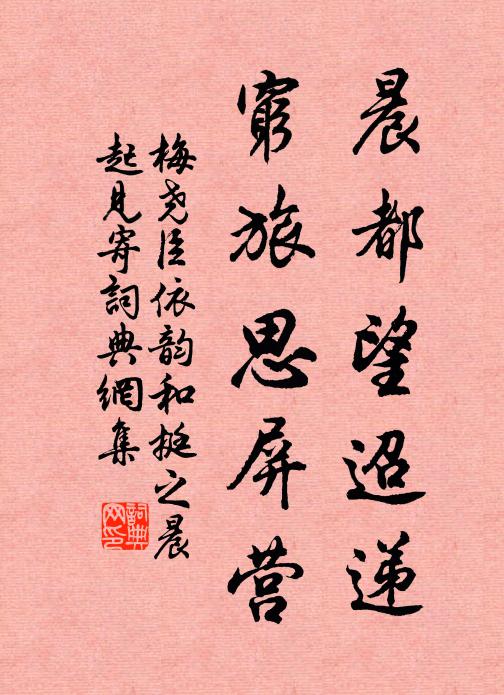 晨都望迢递
窮旅思屏营
梅尧臣依韵和挺之晨
起见寄詞典網集
詞典网印